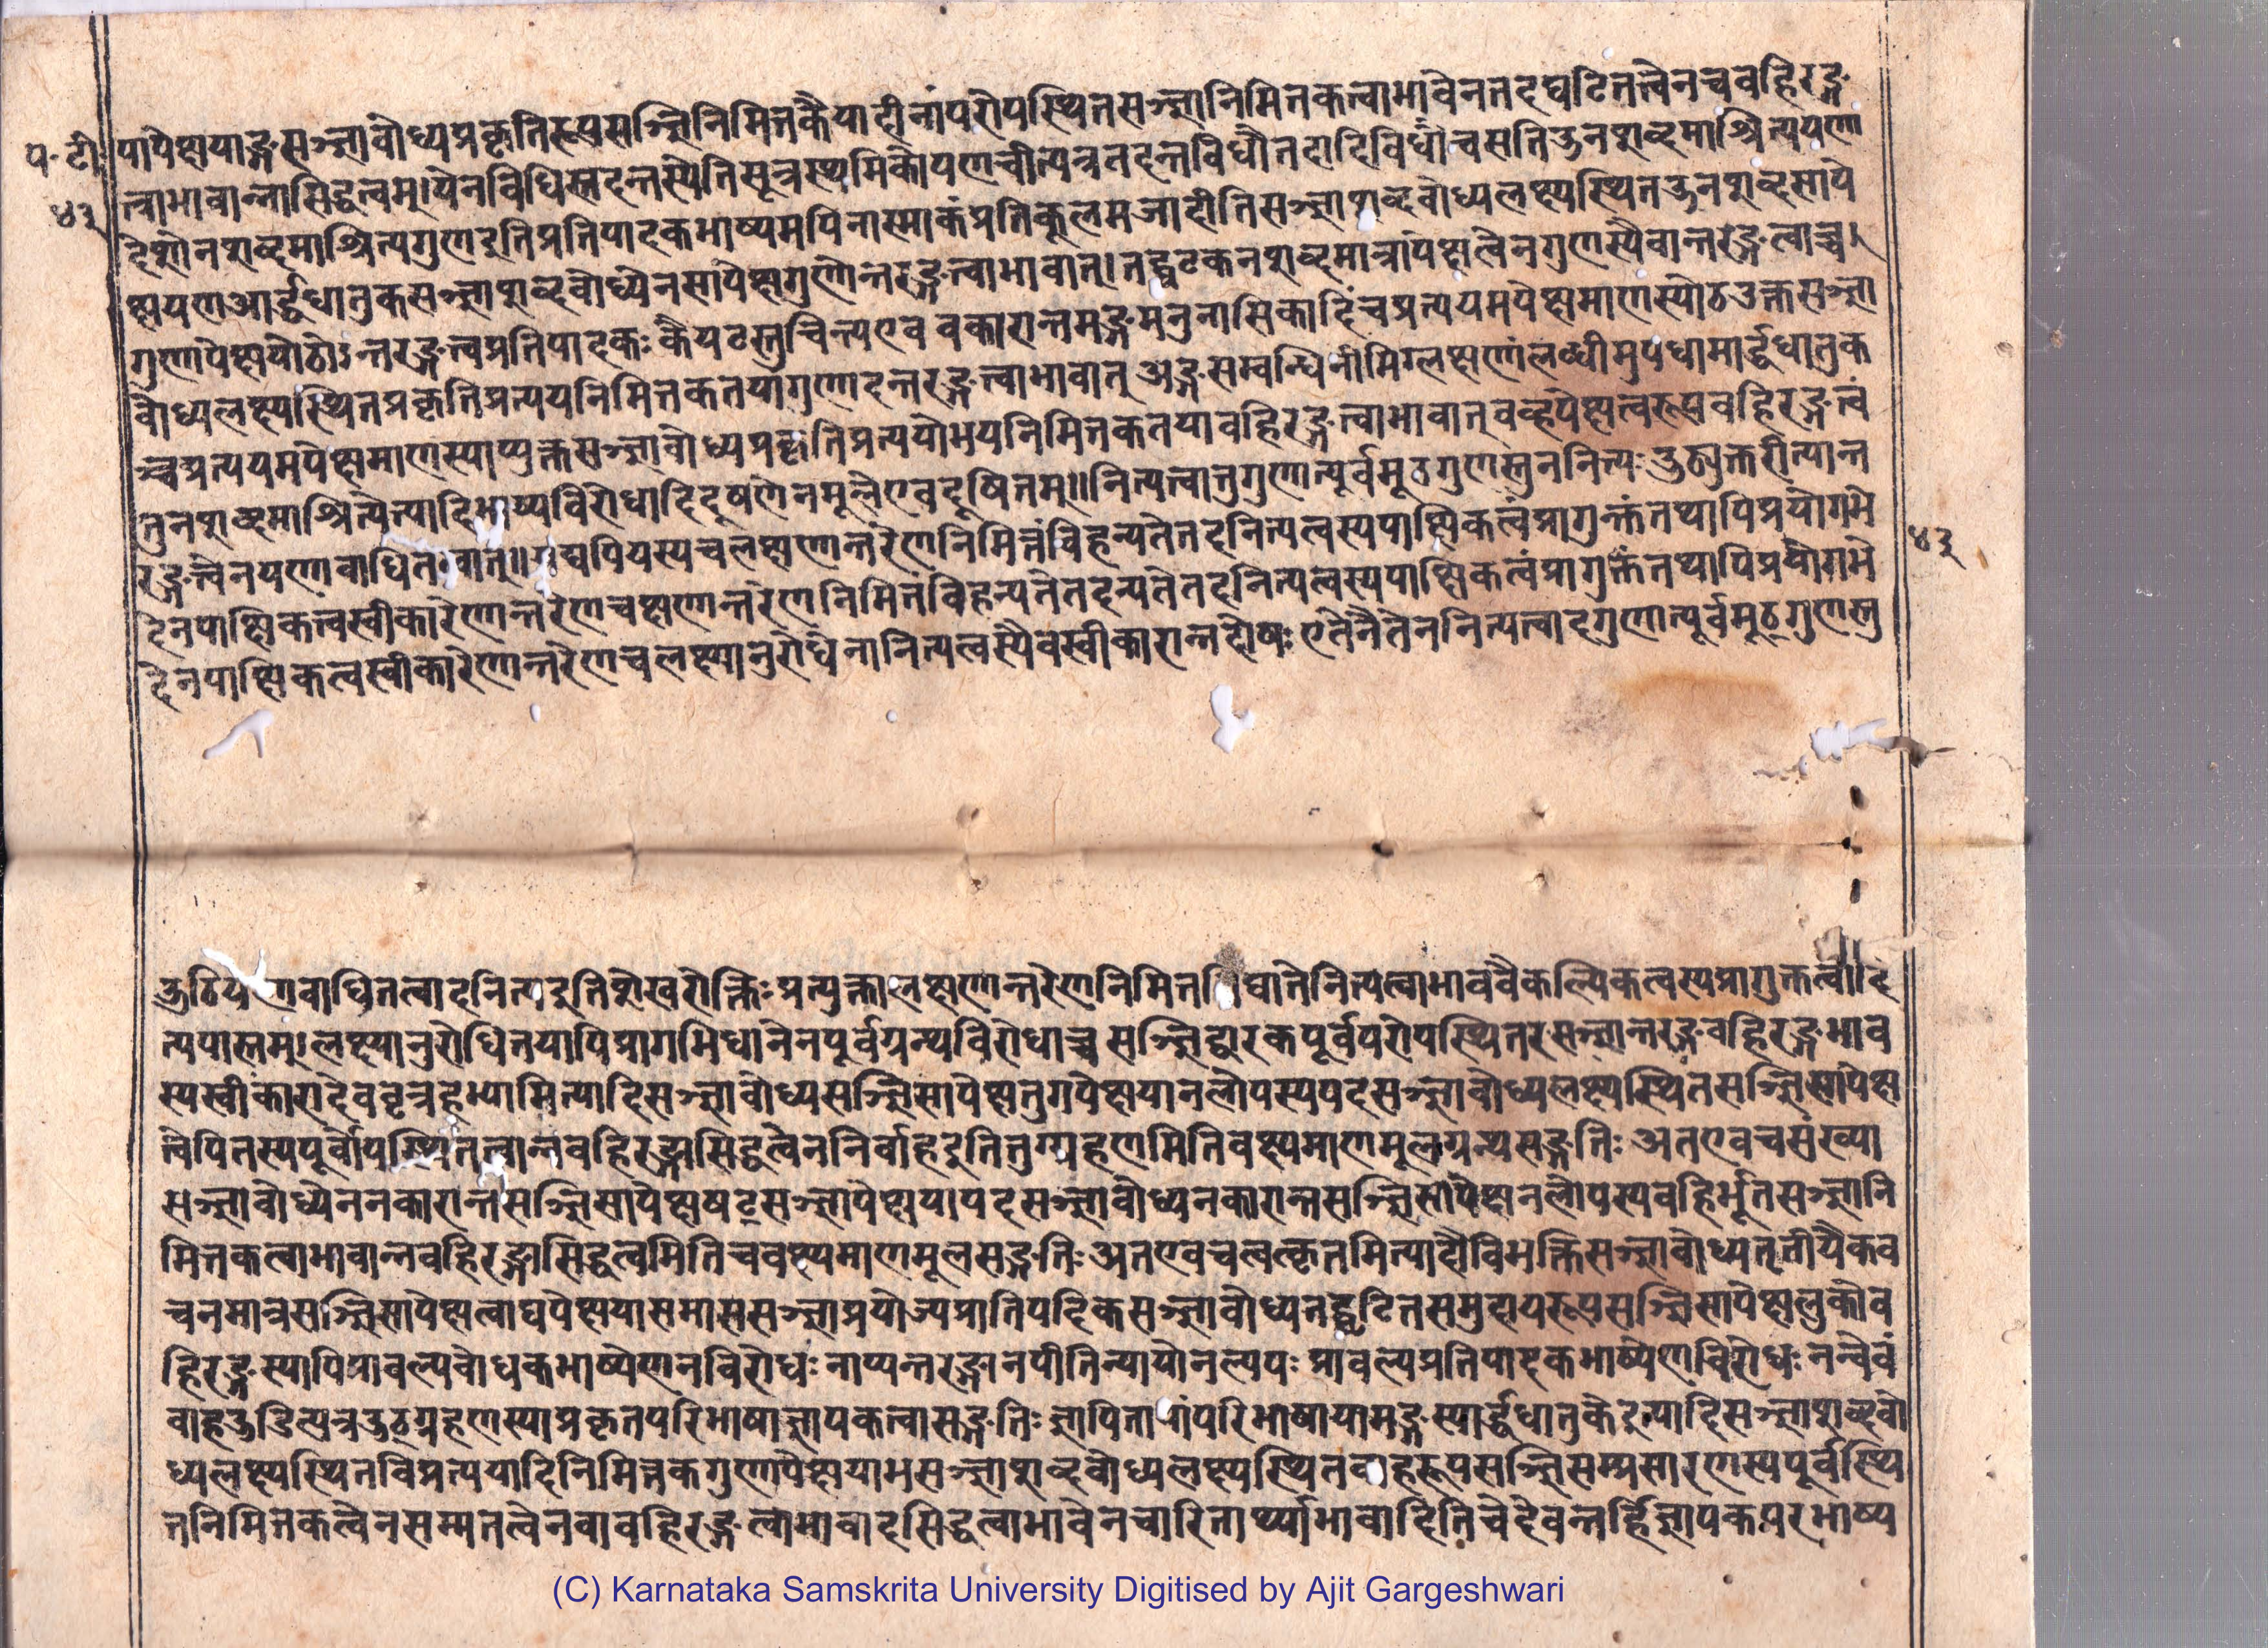 प॰ टी॰
४३
पापेक्षायाङ्गसञ्ज्ञाबोध्यप्रकृतिरूपसञ्ज्ञिनिमित्तकैयादीनांपरोपस्थितसञ्ज्ञानिमितकत्वाभावेनतदघटितत्वेनचबहिरङ्ग
त्वाभावान्नासिद्धत्वम्।येनविधिस्तदन्तस्येतिसूत्रस्थमिकोयणचीत्यत्रतदन्तविधौतदादिविधौचसतिउनशब्दमाश्रित्ययणा
देशोनशब्दमाश्रित्यगुणइतिप्रतिपादकभाष्यमपिनास्माकंप्रतिकूलमआदीतिसञ्ज्ञाशब्दबोध्यलक्ष्यस्थितउनशब्दसापे
क्षायणआर्द्धधातुकसञ्ज्ञाशब्दबोध्येनसापेक्षगुणेन्तरङ्गत्वाभावात्।तद्घटकनशब्दमात्रापेक्षत्वेनगुणस्यैवान्तरङ्गत्वाच्च।
गुणापेक्षायोठोऽन्तरङ्गत्वप्रतिपादकः कैयटस्तुचिन्त्यएव वकारान्तमङ्गमनुनासिकादिंचप्रत्ययमपेक्षमाणस्योठउक्तसञ्ज्ञा
बोध्यलक्ष्यस्थितप्रकृतिप्रत्ययनिमित्तकतयागुणादन्तरङ्गत्वाभावात् अङ्गसम्बन्धिनीमिग्लक्षणांलघ्वीमुपधामार्द्धधातुक
ञ्चप्रत्ययमपेक्षमाणस्याप्युक्तसञ्ज्ञाबोध्यप्रकृतिप्रत्ययोभयनिमित्तकतयाबहिरङ्गत्वाभावात् बव्हपेक्षत्वरूपबहिरङ्गत्वं
तुनशब्दमाश्रित्येत्यादिभाष्यविरोधादिदूषणेनमूलेएवदूषितम्॥नित्यत्वात्तुगुणात्पूर्वमूठगुणस्तुननित्यः उठ्युक्तरीत्यान्त
रङ्गत्वेनयणाबाधितत्वात्॥यद्यपियस्यचलक्षणान्तरेणनिमित्तंविहन्यतेतदनित्यत्वस्यपाक्षिकत्वंप्रागुक्तंतथापिप्रयोगभे
देनपाक्षिकत्वस्वीकारेणान्तरेणचक्षणान्तरेणनिमित्तंविहन्यतेतदन्यतेतदनित्यत्वस्यपाक्षिकत्वंप्रागुक्तंतथापिप्रयोगभे
देनपाक्षिकत्वस्वीकारेणान्तरेणचलक्ष्यानुरोधेनानित्यत्वस्यैवस्वीकारान्नदोषः एतेनैतेननित्यत्वादगुणात्पूर्वमूठ्गुणस्तु
४३
उठिय णाबाधितत्वादनित्यइतिशेखरोक्तिः प्रत्युक्तालक्षणान्तरेणनिमित्त घातेनित्यत्वाभाववैकल्पिकत्वस्यप्रागुक्तत्वादि
त्यपास्तम्।लक्ष्यानुरोधितयापिप्रागभिधानेनपूर्वग्रन्थविरोधाच्च सञ्ज्ञिद्वारकपूर्वपरोपस्थितरसञ्ज्ञान्तरङ्गबहिरङ्गभाव
स्यस्वीकारादेववृत्रहभ्यामित्यादिसञ्ज्ञाबोध्यसञ्ज्ञिसापेक्षतुगपेक्षयानलोपस्यपदसञ्ज्ञाबोध्यलक्ष्यस्थितसञ्ज्ञिसापेक्ष
त्वेपितस्यपूर्वोपस्थितत्वान्नबहिरङ्गासिद्धत्वेननिर्वाहइतितुग्ग्रहणमितिवक्ष्यमाणमूलग्रन्थसङ्गतिः अतएवचसंख्या
सञ्ज्ञाबोध्येननकारान्तसञ्ज्ञिसापेक्षषट्सञ्ज्ञापेक्षयापदसञ्ज्ञाबोध्यनकारान्तसञ्ज्ञिसापेक्षनलोपस्यबहिर्भूतसञ्ज्ञानि
मित्तकत्वाभावान्नबहिरङ्गासिद्धत्वमितिचवक्ष्यमाणमूलसङ्गतिः अतएवचत्वत्कृतमित्यादौविभक्तिसञ्ज्ञाबोध्यतृतीयैकव
चनमात्रसञ्ज्ञिसापेक्षत्वाद्यपेक्षयासमाससञ्ज्ञाप्रयोज्यप्रातिपदिकसञ्ज्ञाबोध्यतद्घटितसमुदायरूपसञ्ज्ञिसापेक्षलुकोब
हिरङ्गस्यापिप्राबल्यबोधकभाष्येणनविरोधः नाप्यन्तरङ्गानपीतिन्यायोनल्यपः प्राबल्यप्रतिपादकभाष्येणविरोधः नन्वेवं
वाहउडित्यत्रउठ्ग्रहणस्याप्रकृतपरिभाषाज्ञापकत्वासङ्गतिः ज्ञापितायांपरिभाषायामङ्गस्यार्द्धधातुकेइत्यादिसञ्ज्ञाशब्दबो
ध्यलक्ष्यस्थितविप्रत्ययादिनिमित्तकगुणापेक्षयाभसञ्ज्ञाशब्दबोध्यलक्ष्यस्थितवाहरूपसञ्ज्ञिसम्प्रसारणस्यपूर्वस्थि
तनिमित्तकत्वेनसम्मतत्वेनवाबहिरङ्गत्वाभावादसिद्धत्वाभावेनचारितार्थ्याभावादितिचेदेवन्तर्हिज्ञापकपरभाष्य
(C) Karnataka Samskrita University Digitised by Ajit Gargeshwari